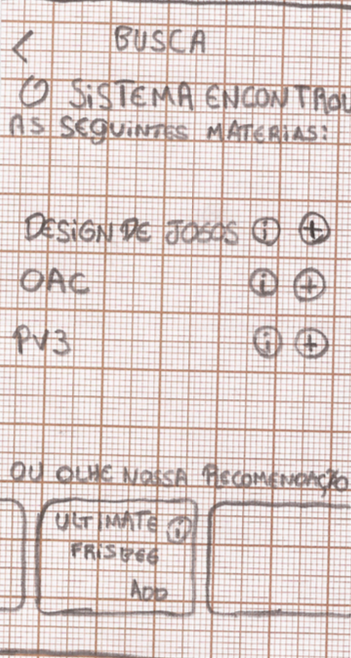 <
BUSCA
O SISTEMA ENCONTROU
AS SEGUINTES MATERIAS:
DESIGN DE JOGOS i +
OAC i +
PV3 i +
OU OLHE NOSSA RECOMENDAÇÃO
ULTIMATE i
ADD